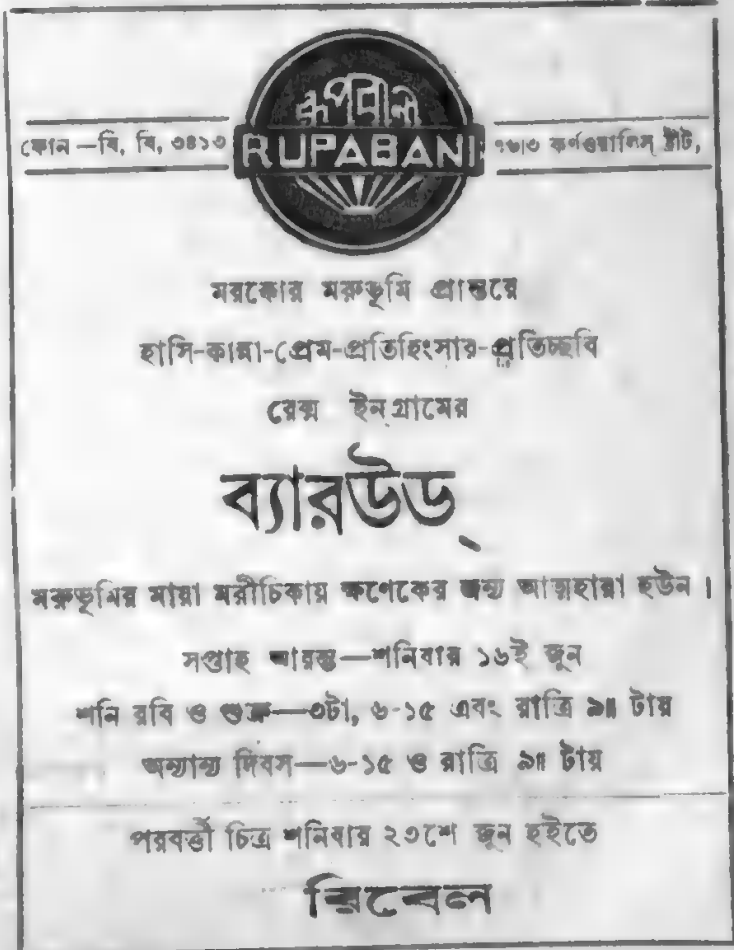 রূপবানী
ফোন—বি, বি, ৩৪১৩
RUPABANI
৭৬।৩ কর্ণওয়ালিস্ ষ্ট্রীট,
মরক্কোর মরুভূমি প্রান্তরে
হাসি-কান্না-প্রেম-প্রতিহিংসার-প্রতিচ্ছবি
রেক্স ইন্গ্রামের
ব্যারউড্
মরুভূমির মায়া মরীচিকায় ক্ষণেকের জন্য আত্মহারা হউন।
সপ্তাহ আরম্ভ—শনিবার ১৬ই জুন
শনি রবি ও শুক্র—৩টা, ৬-১৫ এবং রাত্রি ৯॥ টায়
অন্যান্য দিবস—৬-১৫ ও রাত্রি ৯॥ টায়
পরবর্ত্তী চিত্র শনিবার ২৩শে জুন হইতে
রিবেল